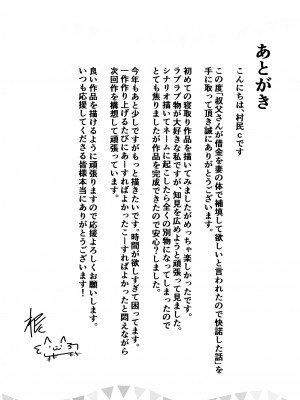 あとがき
こんにちは、村民cです
この度「叔父さんが借金を妻の体で補填して欲しいと言われたので快諾した話」を
手に取って頂き誠にありがとうございます。
初めての寝取り作品を描いてみましたがめっちゃ楽しかったです。
ラブラブ物が大好きな私ですが、知見を広めようと頑張って見ました。
シナリオ描いてネームに起こしたら全くの別物になってしまったので
とても焦りましたが作品を完成できたので安心？しました。
今年もあと少しですがもっと描きたいです。時間が欲しすぎて困ってます。
一作作り上げるたびにあーすればよかったこーすればよかったと悶えながら
次回作を構想して頑張っています。
良い作品を描けるように頑張りますので応援よろしくお願いします。
いつも応援してくださる皆様本当にありがとうございます！